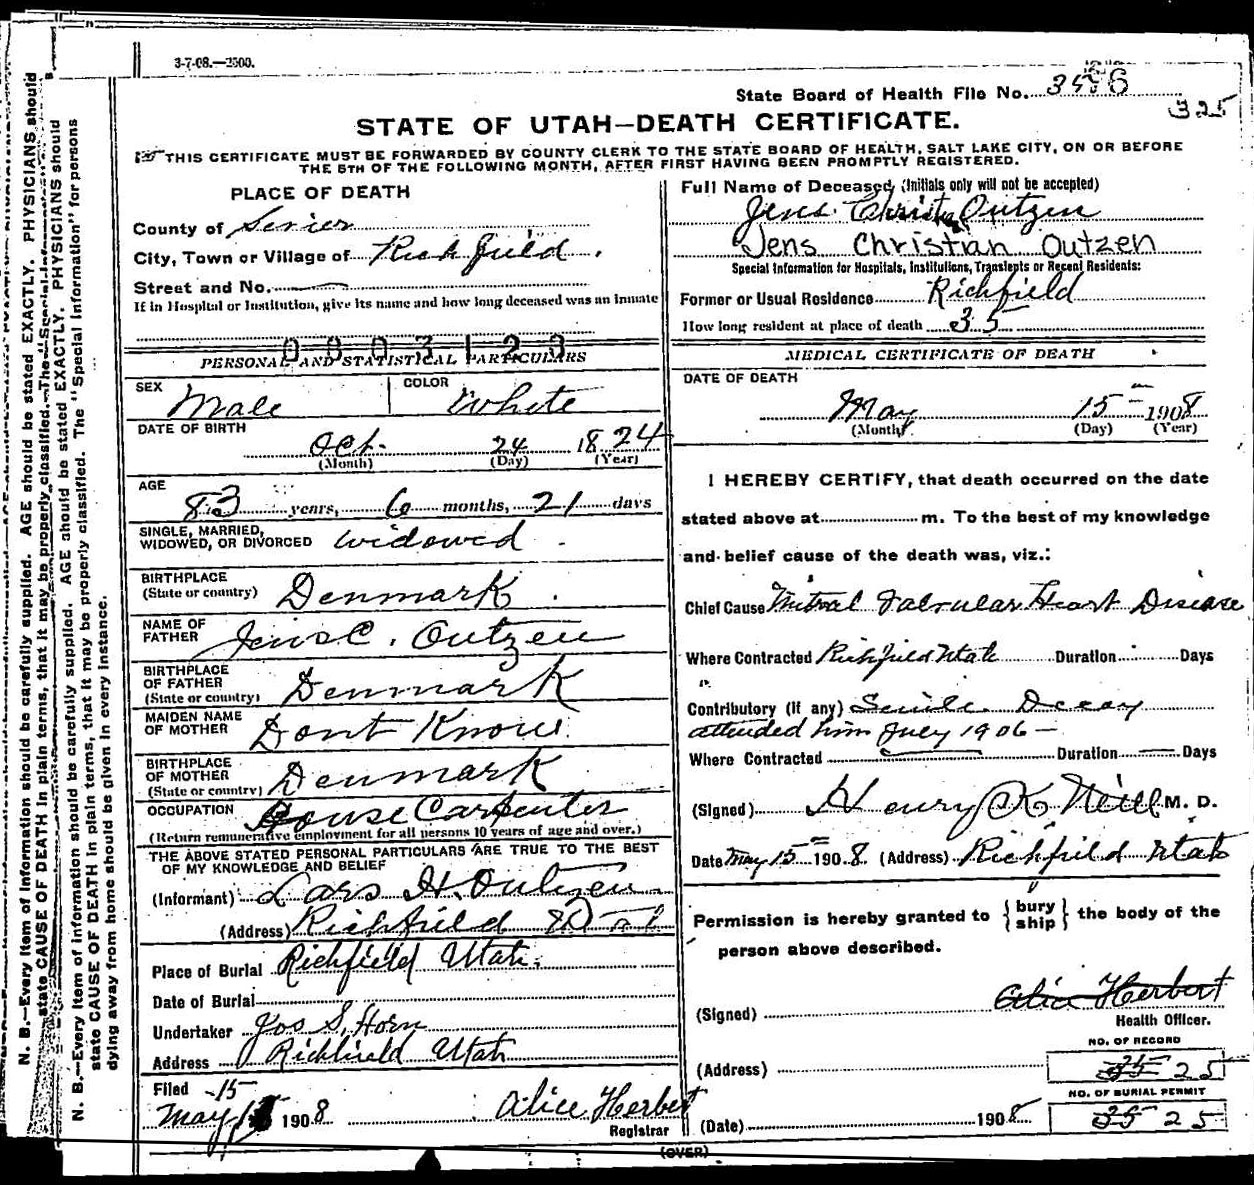 3-7-08.—2500.
State Board of Health File No.
325
STATE OF UTAH—DEATH CERTIFICATE.
THIS CERTIFICATE MUST BE FORWARDED BY COUNTY CLERK TO THE STATE BOARD OF HEALTH, SALT LAKE CITY, ON OR BEFORE
THE 5TH OF THE FOLLOWING MONTH, AFTER FIRST HAVING BEEN PROMPTLY REGISTERED.
PLACE OF DEATH
County of Sevier
City, Town or Village of Richfield.
Street and No.
If in Hospital or Institution, give its name and how long deceased was an inmate
0803123
PERSONAL AND STATISTICAL PARTICULARS
SEX Male
COLOR White
DATE OF BIRTH
Oct. 24 1824
(Month) (Day) (Year)
AGE
83 years, 6 months, 21 days
SINGLE, MARRIED,
WIDOWED, OR DIVORCED widowed
BIRTHPLACE
(State or country) Denmark.
NAME OF
FATHER Jens C. Outzen
BIRTHPLACE
OF FATHER
(State or country) Denmark
MAIDEN NAME
OF MOTHER Dont Know.
BIRTHPLACE
OF MOTHER
(State or country) Denmark
OCCUPATION House Carpenter
(Return remunerative employment for all persons 10 years of age and over.)
THE ABOVE STATED PERSONAL PARTICULARS ARE TRUE TO THE BEST
OF MY KNOWLEDGE AND BELIEF
(Informant) Lars H. Outzen
(Address) Richfield Utah
Place of Burial Richfield Utah.
Date of Burial
Undertaker Jos S. Horn
Address Richfield Utah
Filed -15
May 15 1908 Alice Herbert
Registrar
Full Name of Deceased, (Initials only will not be accepted)
Jens Christ Outzen
Jens Christian Outzen
Special Information for Hospitals, Institutions, Transients or Recent Residents:
Former or Usual Residence Richfield
How long resident at place of death 35
MEDICAL CERTIFICATE OF DEATH
DATE OF DEATH
May 15 1908
(Month) (Day) (Year)
I HEREBY CERTIFY, that death occurred on the date
stated above at m. To the best of my knowledge
and belief cause of the death was, viz.:
Chief Cause Mitral Valvular Heart Disease
Where Contracted Richfield Utah Duration Days
Contributory (If any) Senile Decay
attended him July 1906 —
Where Contracted Duration Days
(Signed) Henry K. Neill M. D.
Date May 15 1908. (Address) Richfield Utah
Permission is hereby granted to { bury ship } the body of the
person above described.
(Signed) Alice Herbert
Health Officer.
NO. OF RECORD
(Address) 35 25
NO. OF BURIAL PERMIT
(Date) 1908 35 25
(OVER)
N. B.—Every item of information should be carefully supplied. AGE should be stated EXACTLY. PHYSICIANS should
state CAUSE OF DEATH in plain terms, that it may be properly classified. The "Special Information" for persons
N. B.—Every item of information should be carefully supplied. AGE should be stated EXACTLY. PHYSICIANS should
state CAUSE OF DEATH in plain terms, that it may be properly classified. The "Special Information" for persons
dying away from home should be given in every instance.